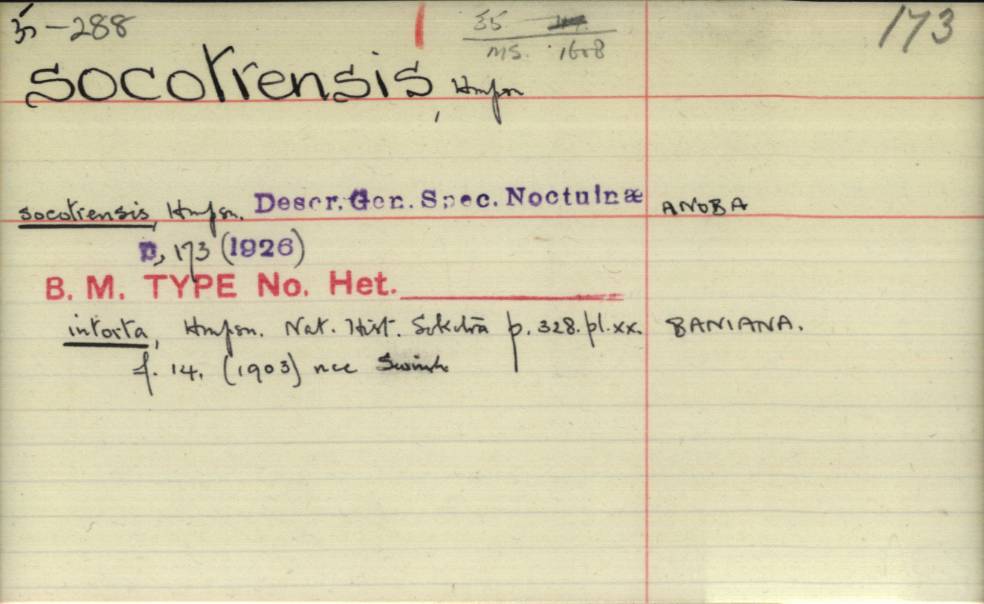 35-288
35
173
MS. 1608
socotrensis, Hmpsn
socotrensis, Hmpsn. Descr. Gen. Spec. Noctuinæ ANOBA
p, 173 (1926)
B. M. TYPE No. Het.
intorta, Hmpsn. Nat. Hist. Sokotra p. 328. pl. xx. BANIANA.
f. 14. (1903) nec Swinh